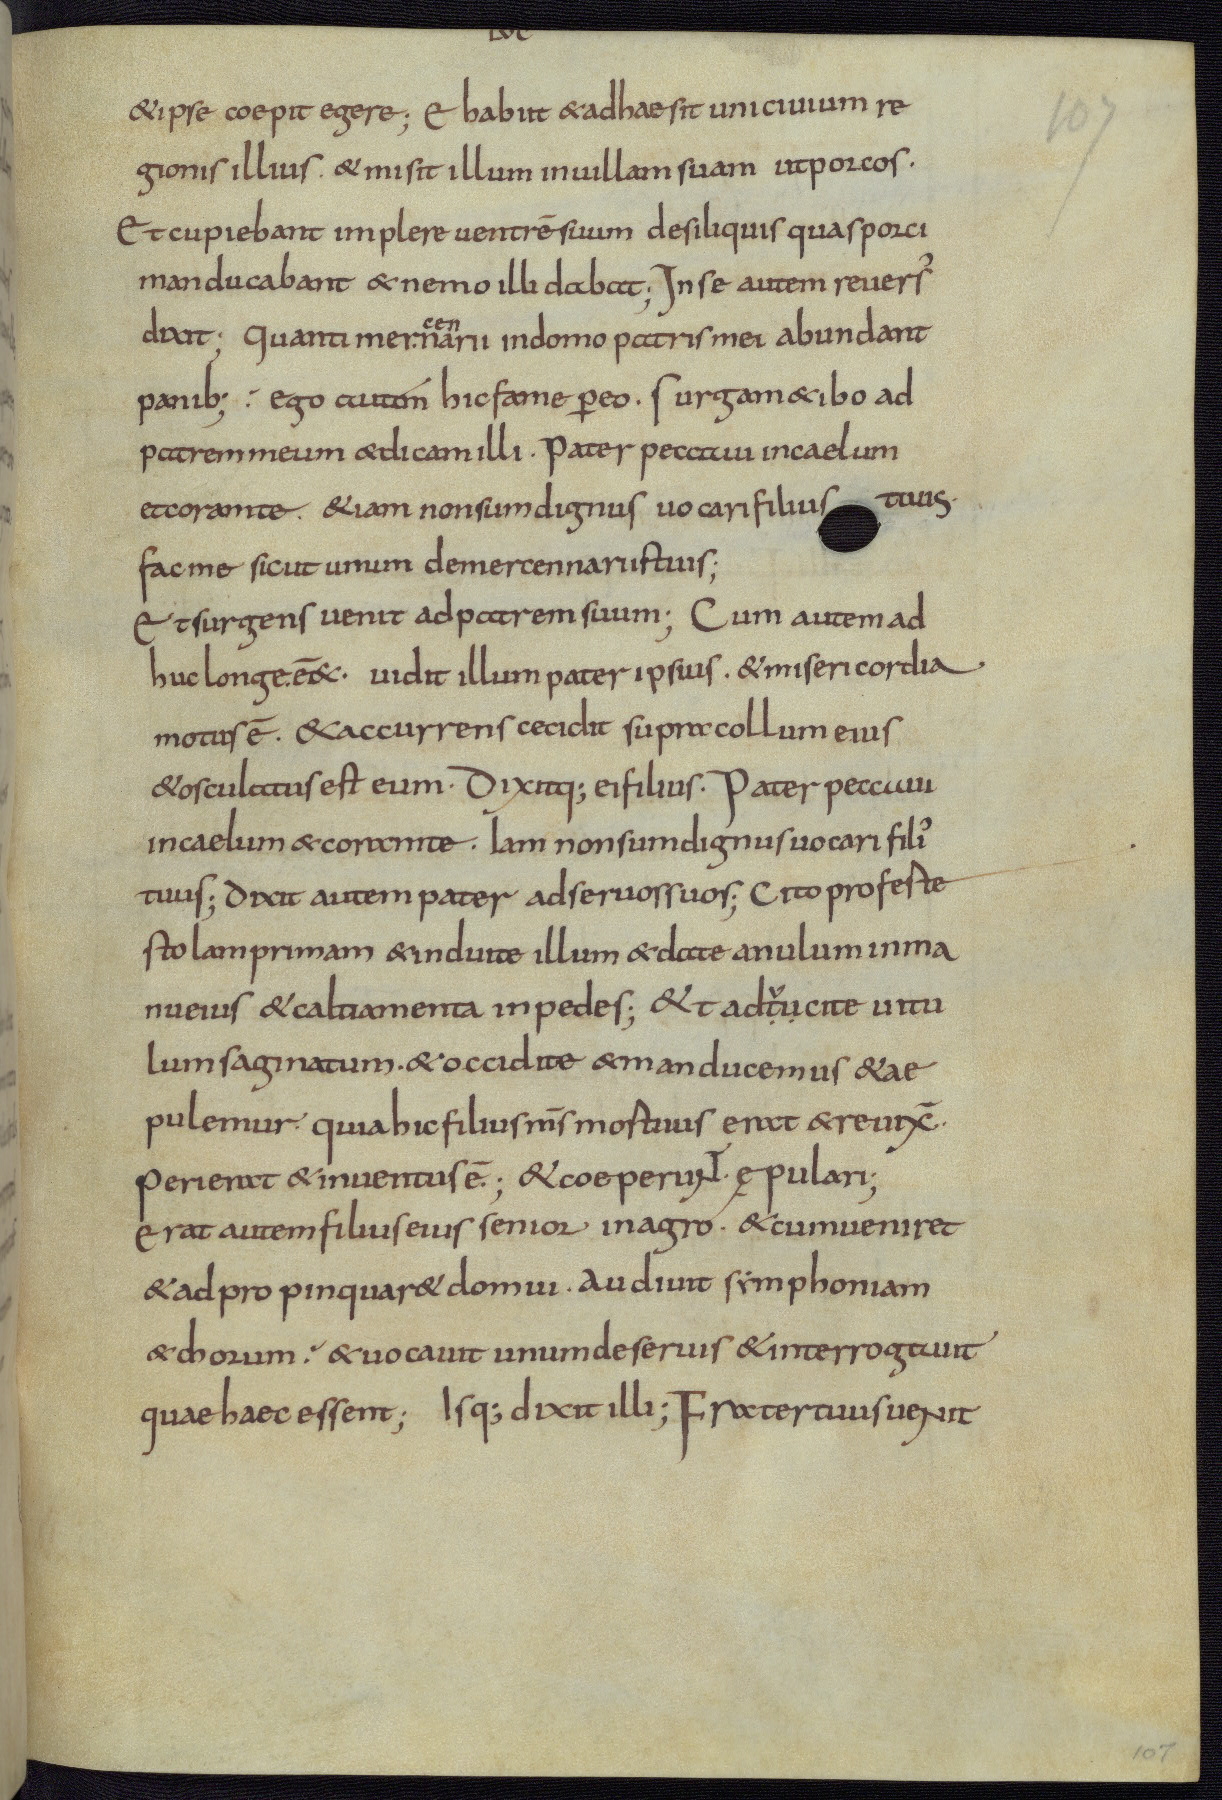 LUC
107
& ipse coepit egere; Et habiit & adhaesit uni ciuium re
gionis illius. & misit illum in uillam suam ut porcos.
Et cupiebant implere uentrē suum de siliquis quas porci
manducabant & nemo illi dabat; In se autem reuersꝰ
dixit; Quanti mer..cennarii in domo patris mei abundant
panib; : ego autem hic fame ꝑeo. surgam & ibo ad
patrem meum & dicam illi. Pater peccaui in caelum
et coram te. & iam non sum dignus uocari filius tuus.
fac me sicut unum de mercennariis tuis;
Et surgens uenit ad patrem suum; Cum autem ad
huc longe .e̅&. uidit illum pater ipsius. & misericordia
motus ē. & accurrens cecidit supra collum eius
& osculatus est eum. Dixitq; ei filius. Pater peccaui
in caelum & coram te. Iam non sum dignus uocari filiꝰ
tuus; Dixit autem pater ad seruos suos; Cito profeste
stolam primam & induite illum & date anulum in ma
nu eius & caltiamenta in pedes; &t adṭụucite uitu
lum saginatum. & occidite & manducemus & ae
pulemur. quia hic filius m̅s mostuus erat & reuix̅.
Perierat & inuentus ē.; & coeperunt ępulari;
Erat autem filius eius senior in agro. & cum ueniret
& adpropinquar& domui. Audiuit symphoniam
& chorum. & uocauit unum de seruis & interrogauit
quae haec essent; Isq; dixit illi; Frater tuus uenit
107